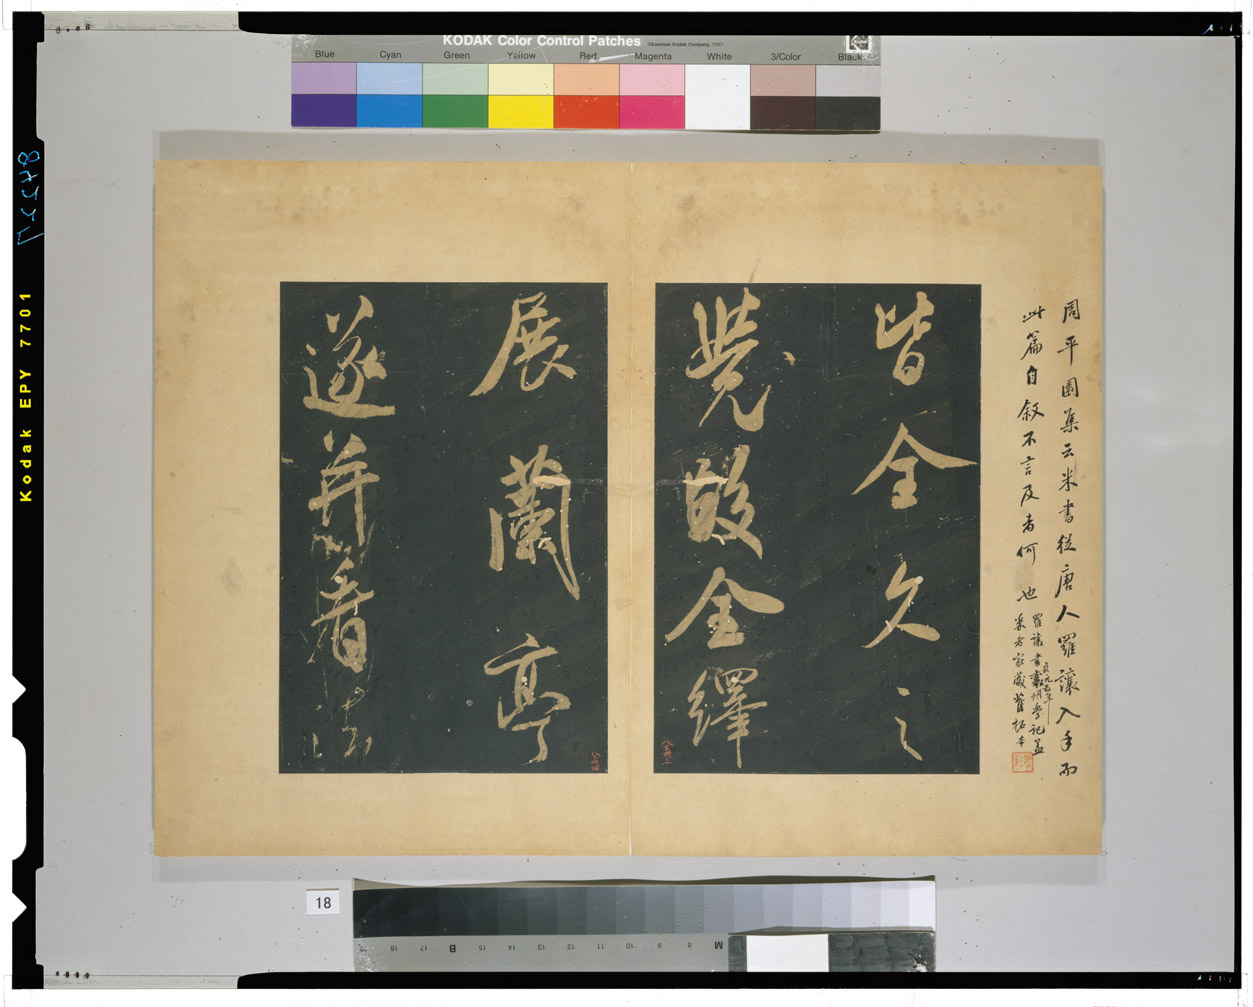 KODAK Color Control Patches ©Eastman Kodak Company, 1997
Kodak
Blue Cyan Green Yellow Red Magenta White 3/Color Black
周平園集云米書從唐人羅讓入手而
此篇自叙不言及者何也
羅讓書襄州學記蓋
米老家藏舊拓本
貞元五年
皆全久之
覺㪘全繹
展蘭亭
遂并看法
Kodak EPY 7701
18
19 18 17 B 15 14 13 12 11 10 9 8 M